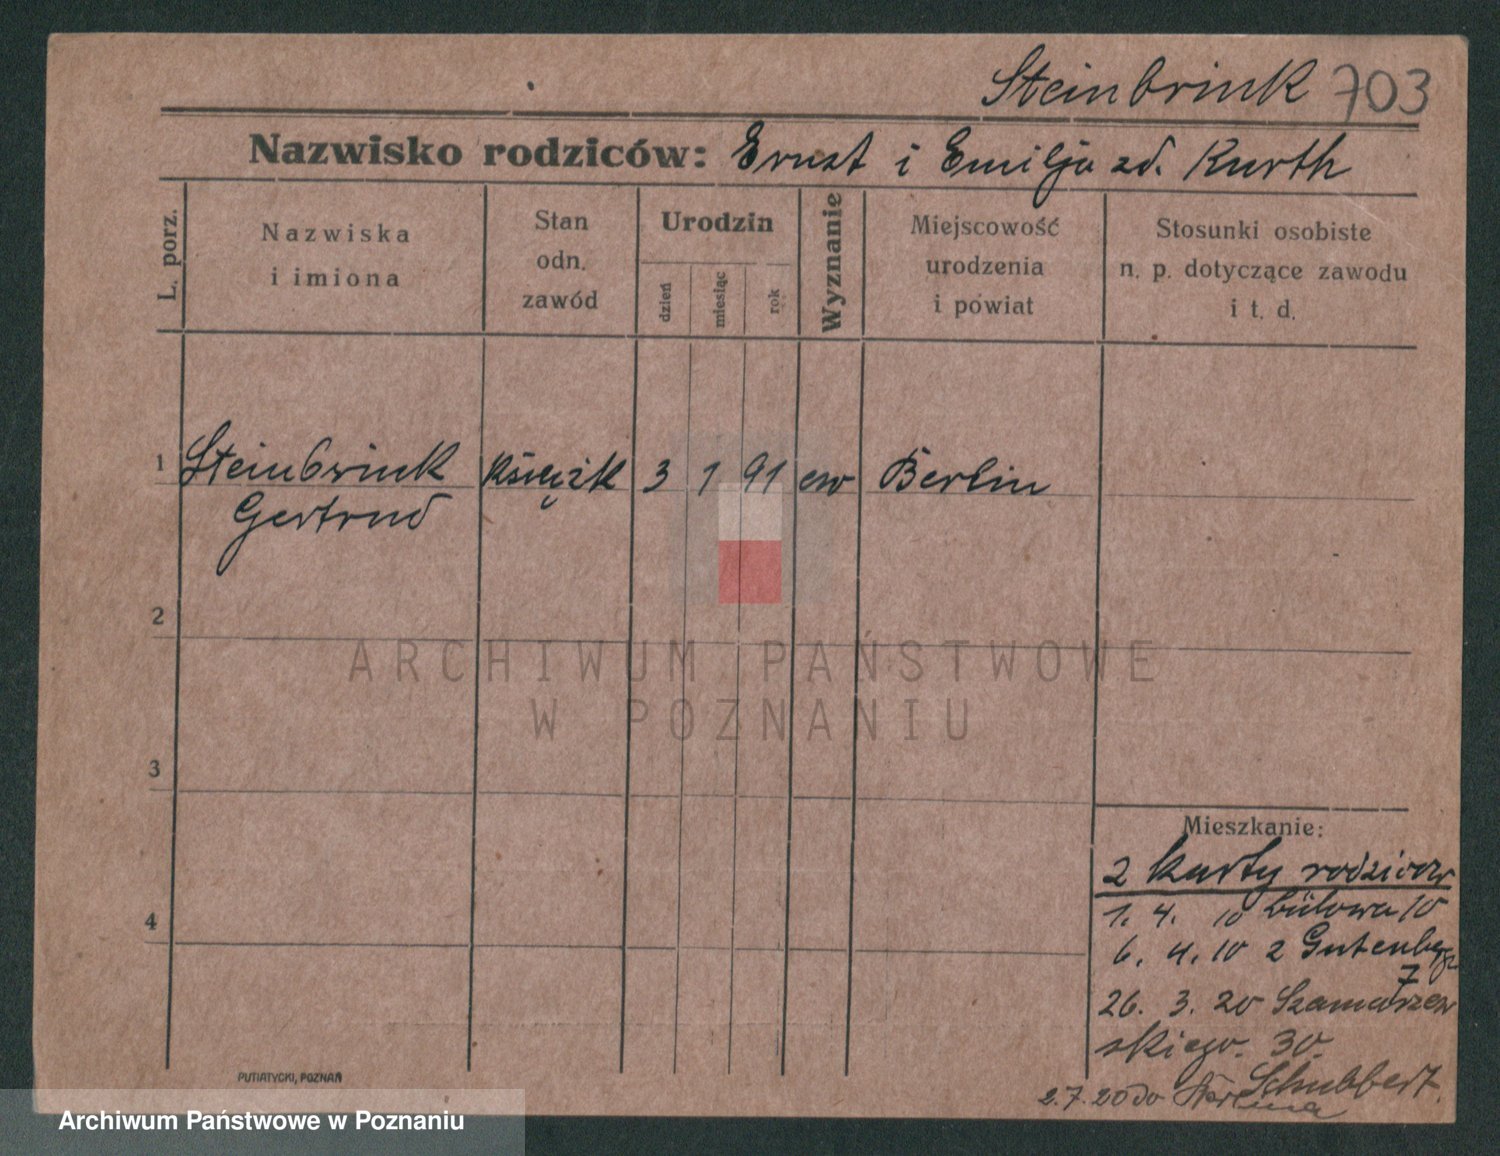 Steinbrink 703
Nazwisko rodziców: Ernst i Emilja zd. Kurth
L. porz.
Nazwiska
i imiona
Stan
odn.
zawód
Urodzin
dzień
miesiąc
rok
Wyznanie
Miejscowość
urodzenia
i powiat
Stosunki osobiste
n. p. dotyczące zawodu
i t. d.
1 Steinbrink Książk 3 1 91 ew Berlin
Gertrud
2
ARCHIWUM PAŃSTWOWE
W POZNANIU
3
Mieszkanie:
2 karty rodziców
4
1. 4. 10 Bülowa 10
6. 4. 10 2 Gutenberg
7
26. 3. 20 Szamarzew
skiego. 30.
Schubbert.
2.7.20 do
PUTIATYCKI, POZNAŃ
Archiwum Państwowe w Poznaniu